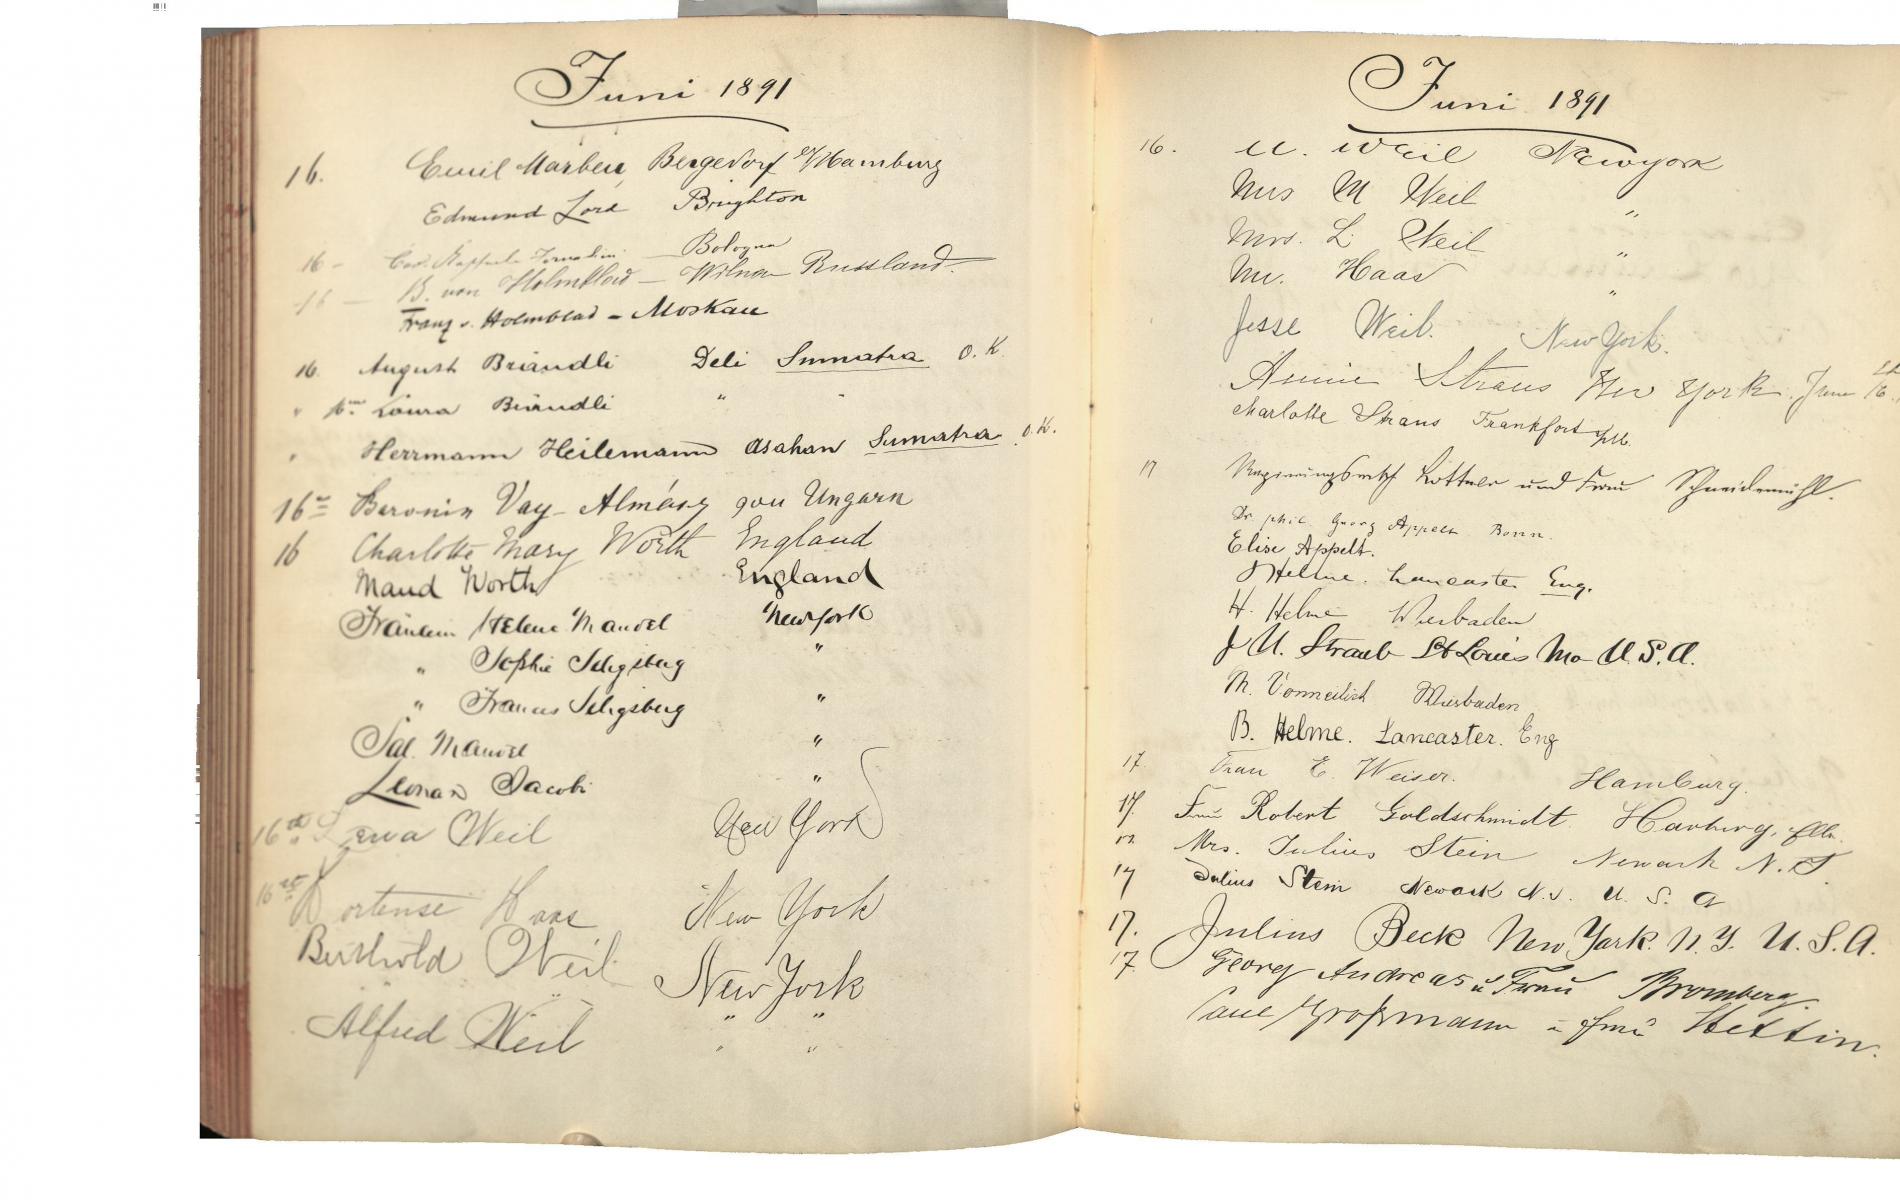 Juni 1891
16. Emil Marben, Bergedorf b/Hamburg
Edmund Lord Brighton
16 - Cav. Raffaele - Bologna
16 - B. von Holmblad - Wilna Russland.
Franz v. Holmblad - Moskau
16. August Brändli Deli Sumatra O. K.
" Laura Brändli " "
" Herrmann Heilemann Asahan Sumatra O. K.
16 Baronin Vay - Almásy von Ungarn
16 Charlotte Mary Worth England
Maud Worth England
Fräulein Helene Mandel New York
" Sophie Seligsberg "
" Frances Seligsberg "
Sal. Mandel "
Leonard Jacobi "
16th Lena Weil New York
16th Hortense Haas New York
Berthold Weil New York
Alfred Weil " "
" "
Juni 1891
16. M. Weil Newyork
Mrs M Weil "
Mrs. L. Weil "
Mr. Haas "
Jesse Weil. New York.
Annie Straus New York. June 16th
Charlotte Straus Frankfort a/M.
17 und Frau Schneidemühl.
Dr phil Georg Appelt Bonn.
Elise Appelt.
J Helme. Lancaster Eng.
H. Helme Wiesbaden
J U. Straub St Louis Mo U. S. A.
M. Wiesbaden
B. Helme. Lancaster. Eng
17. Frau E. Weiser. Hamburg.
17. Frau Robert Goldschmidt. Harburg, Elbe.
17 Mrs. Julius Stein Newark N. J.
17 Julius Stein Newark N. J. U. S. A
17. Julius Beck New York. N. Y. U. S. A.
17 Georg Andreas u Frau Bromberg
Paul Großmann u Frau Stettin.